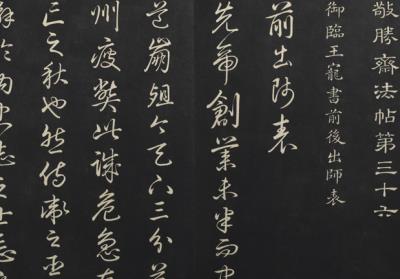 敬勝齋法帖第三十六
御臨王寵書前後出師表
前出師表
先帝創業未半而中
道崩殂今天下三分益
州疲弊此誠危急存
亡之秋也然侍衛之臣